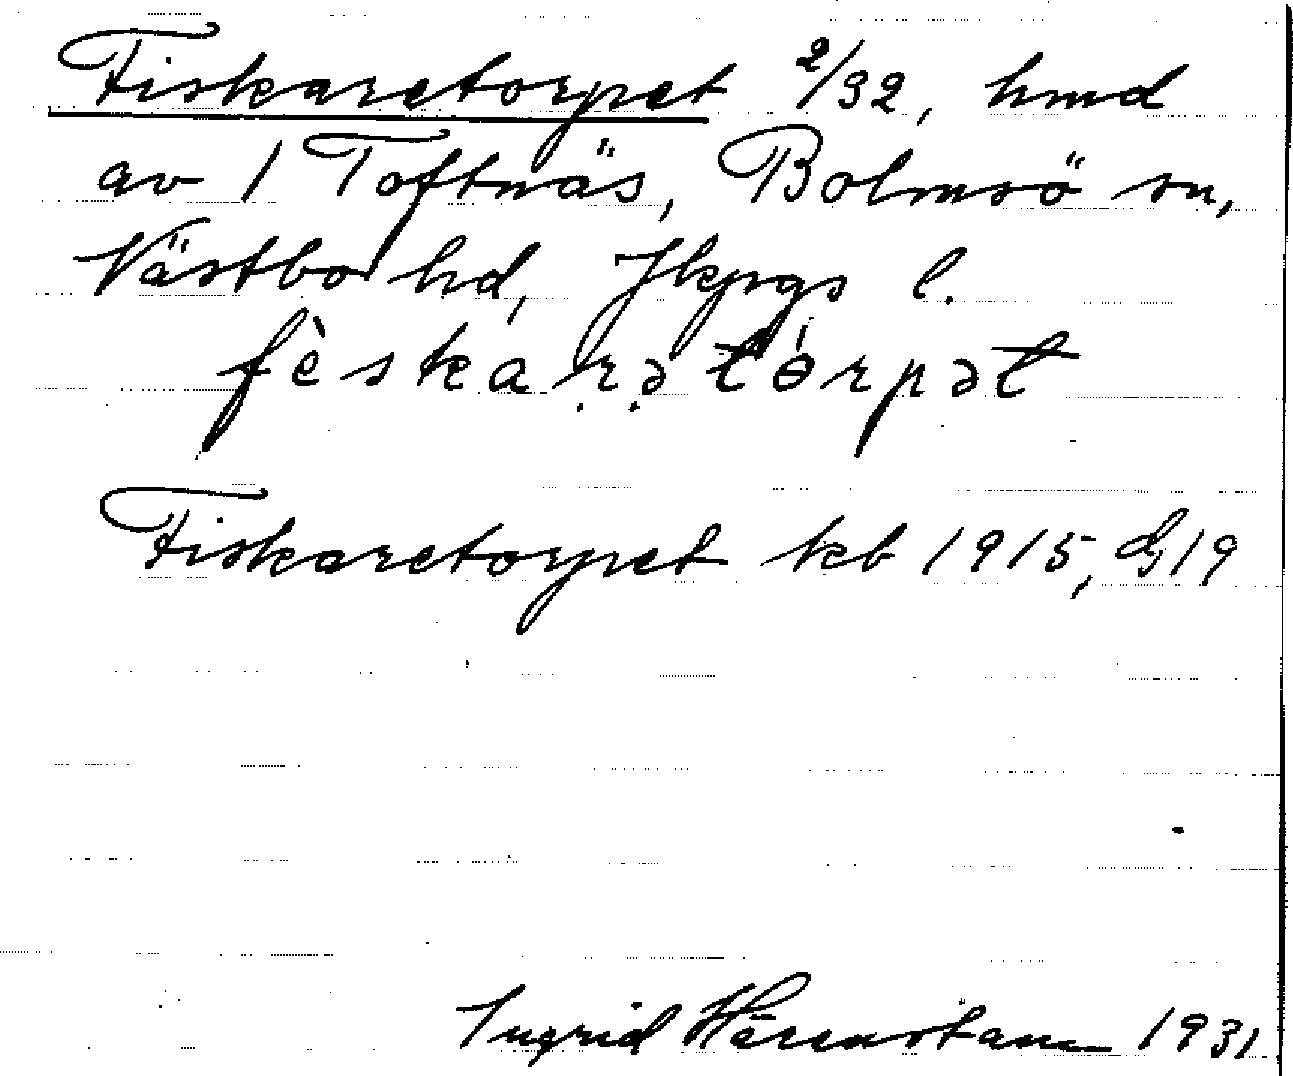 Fiskaretorpet 2/32, hmd
av 1 Toftnäs, Bolmsö sn,
Västbo hd, Jkpgs l.
fèskarətórpət
Fiskaretorpet kb 1915, G19
Ingrid Härenstam 1931